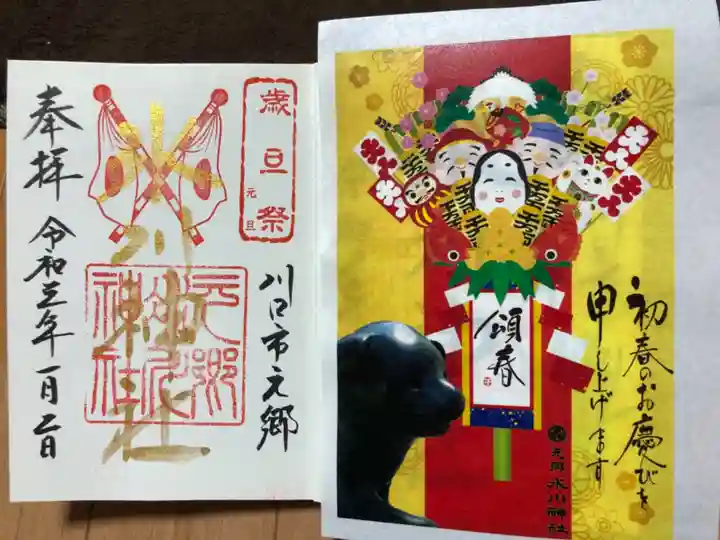 歳旦祭
元旦
奉拝
氷川神社
元郷氷川神社
川口市元郷
令和三年一月二日
初春のお慶びを
申し上げます
頌春
元郷氷川神社